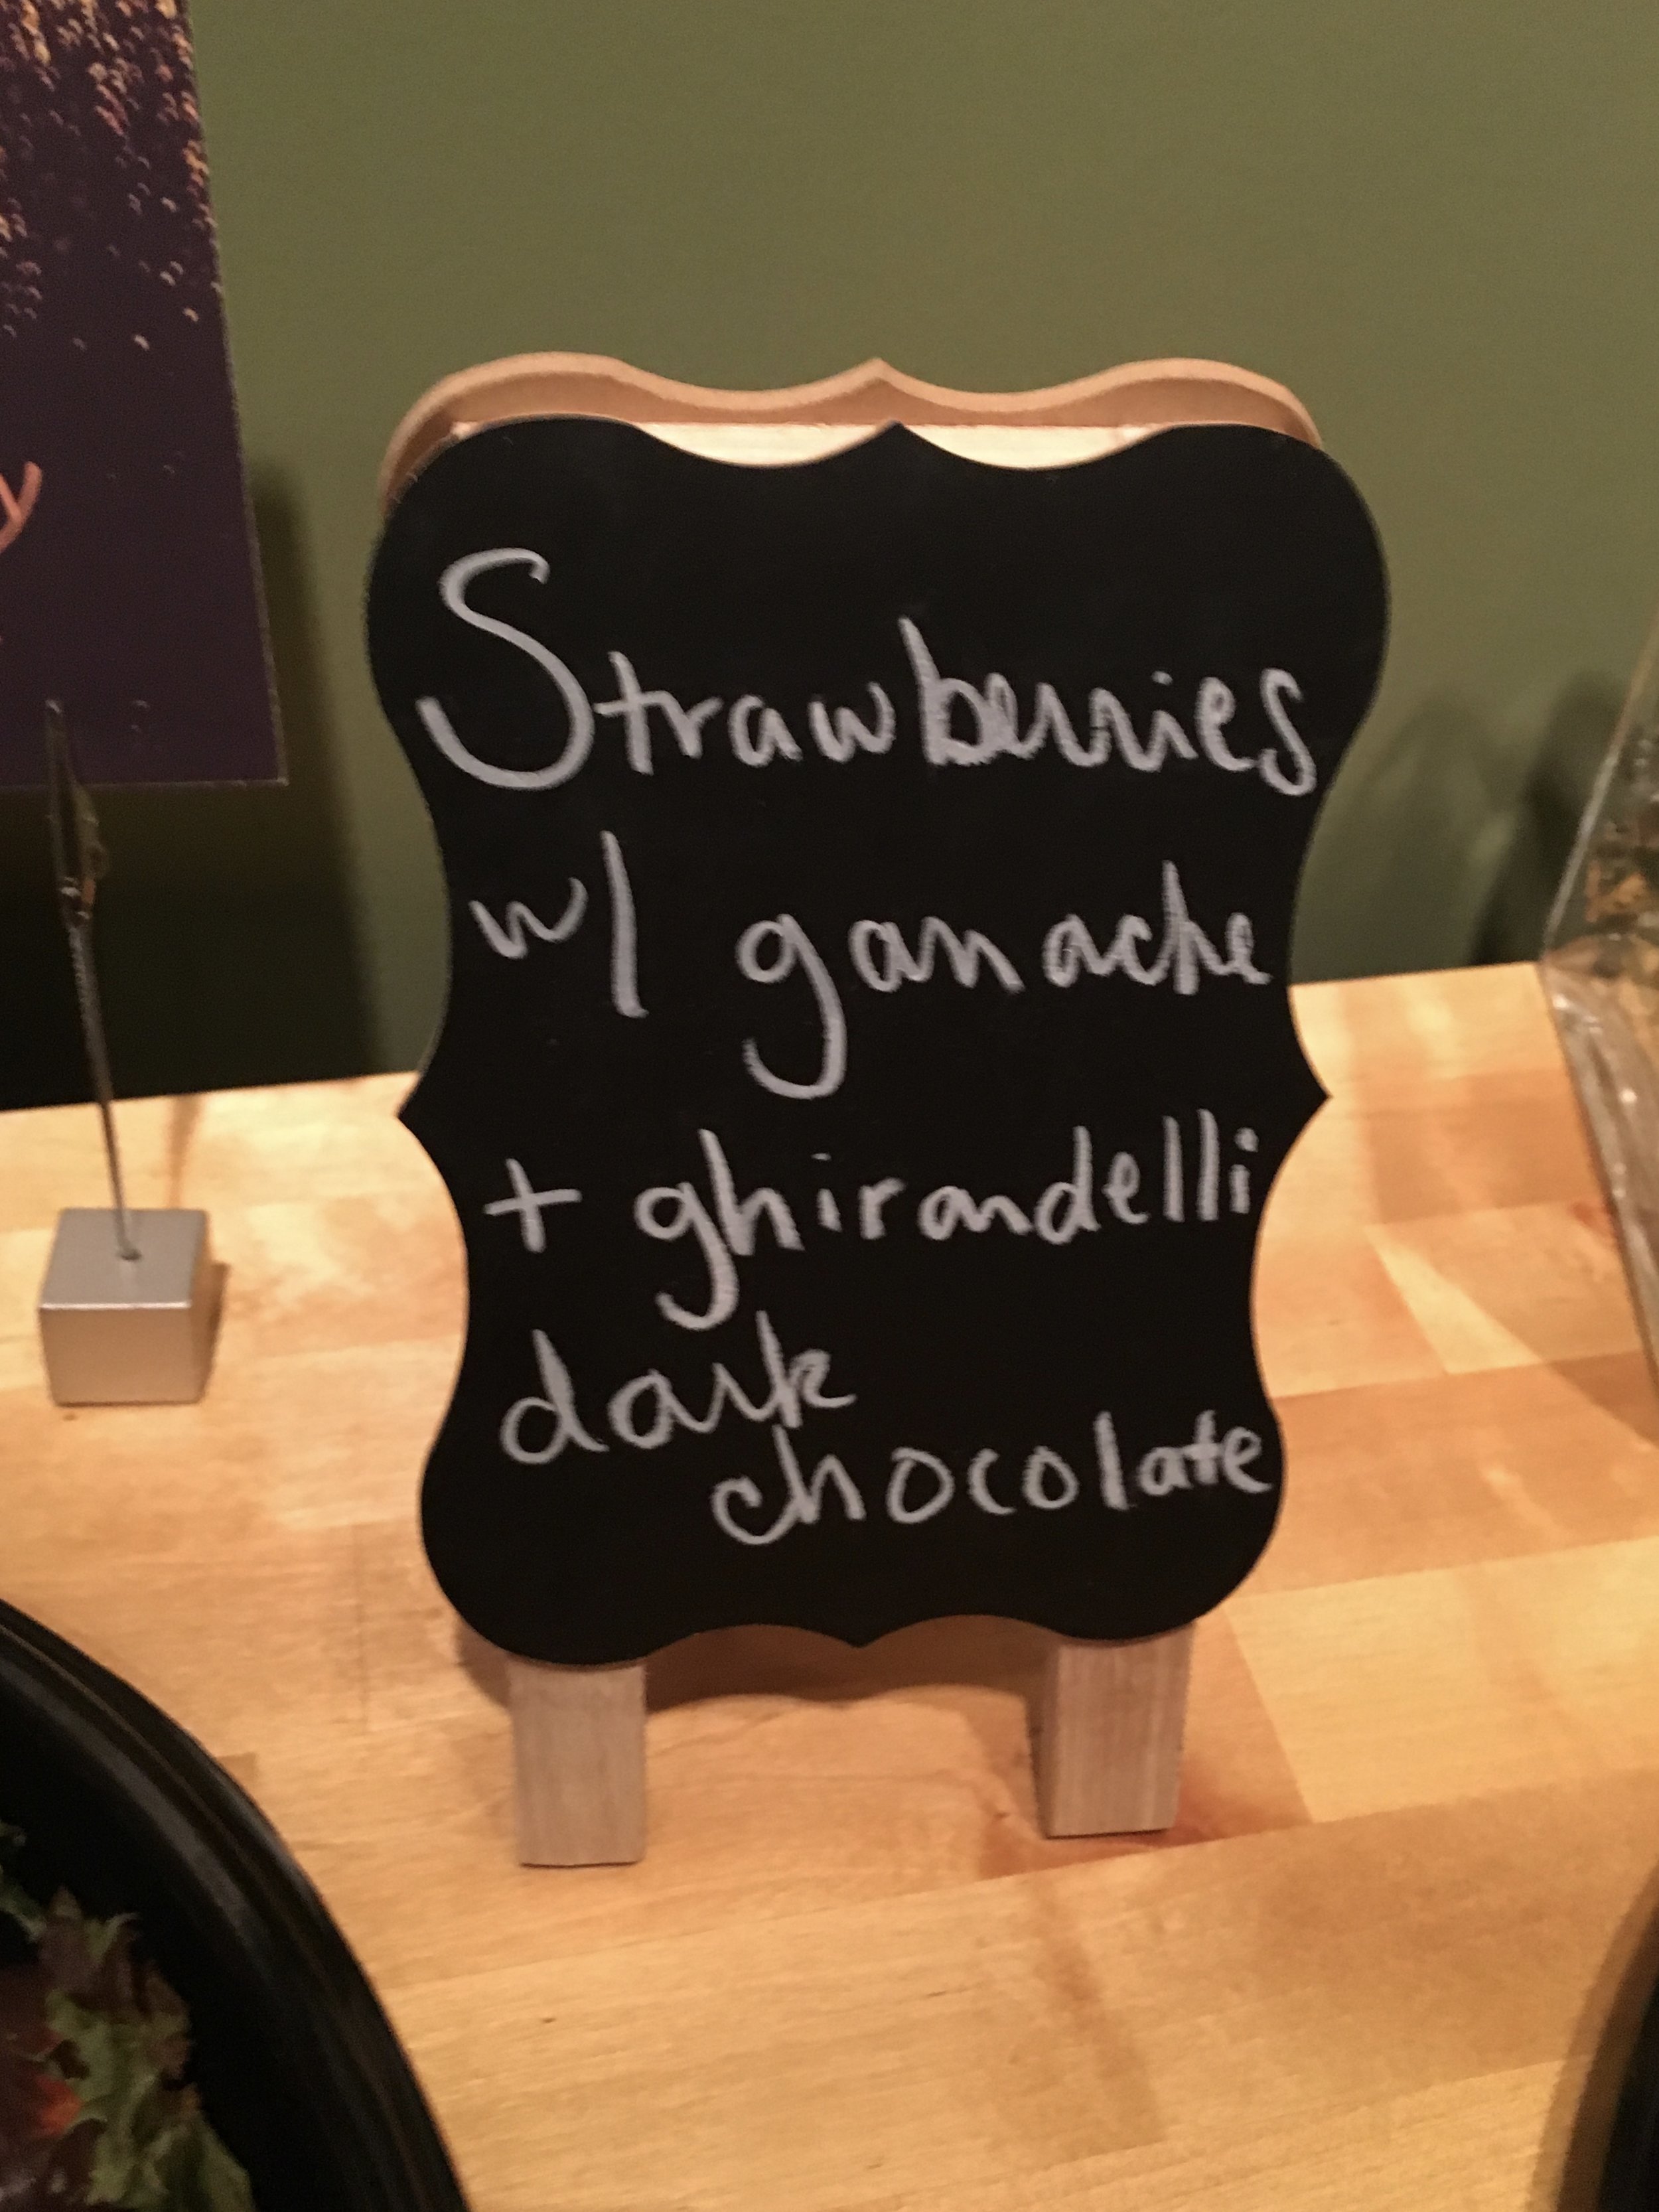 Strawberries
w/ ganache
+ ghirandelli
dark
chocolate